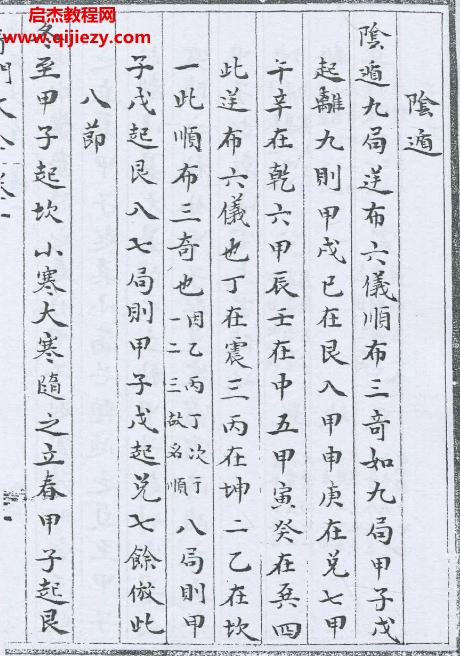 启杰教程网
www.qijiezy.com
陰遁
陰遁九局逆布六儀順布三奇如九局甲子戊
起離九則甲戌己在艮八甲申庚在兌七甲
午辛在乾六甲辰壬在中五甲寅癸在巽四
此逆布六儀也丁在震三丙在坤二乙在坎
一此順布三奇也因乙丙丁次于一二三故名順八局則甲
子戊起艮八七局則甲子戊起兌七餘倣此
八節
冬至甲子起坎小寒大寒隨之立春甲子起艮